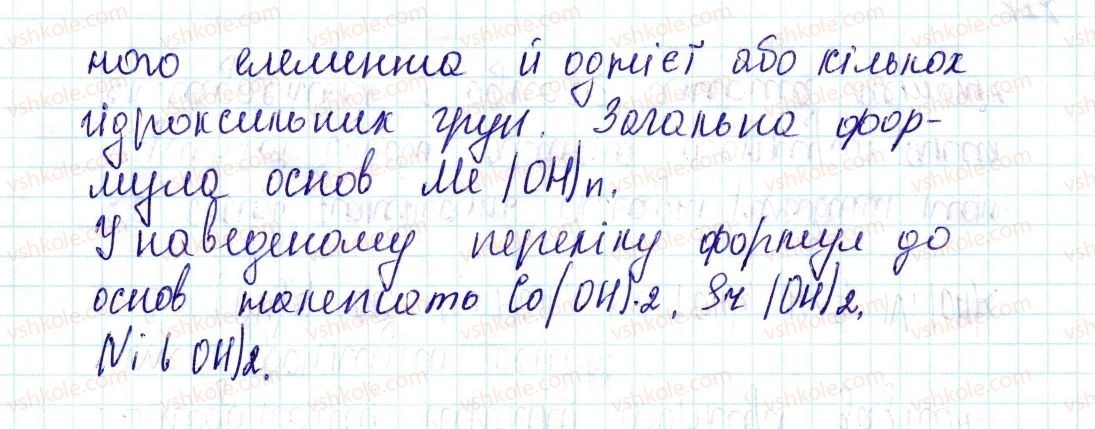 ного елемента й однієї або кількох
гідроксильних груп. Загальна фор-
мула основ Me(OH)n.
У наведеному переліку формул до
основ належать Co(OH)2, Sr(OH)2,
Ni(OH)2.